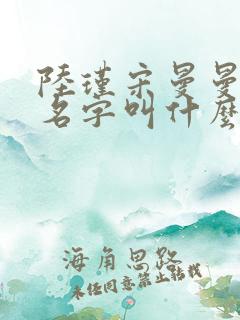 陸瑾宋曼曼
名字叫什麼
海角思路
未经同意禁止转载